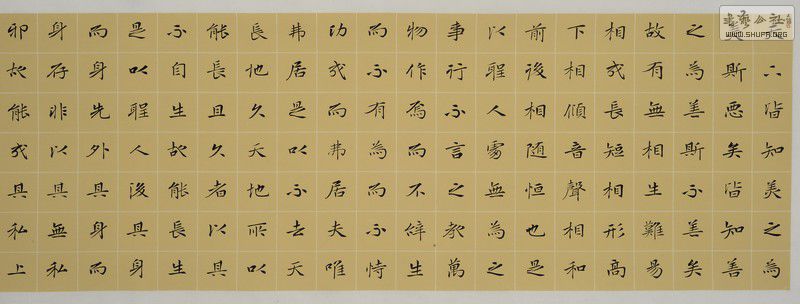 下皆知美之為
美斯惡矣皆知善
之為善斯不善矣
故有無相生難易
相成長短相形高
下相傾音聲相和
前後相随恒也是
以聖人處無為之
事行不言之教萬
物作焉而不辭生
而不有為而不恃
功成而弗居夫唯
弗居是以不去天
長地久天地所以
能長且久者以其
不自生故能長生
是以聖人後其身
而身先外其身而
身存非以其無私
邪故能成其私上
WWW.SHUFA.ORG